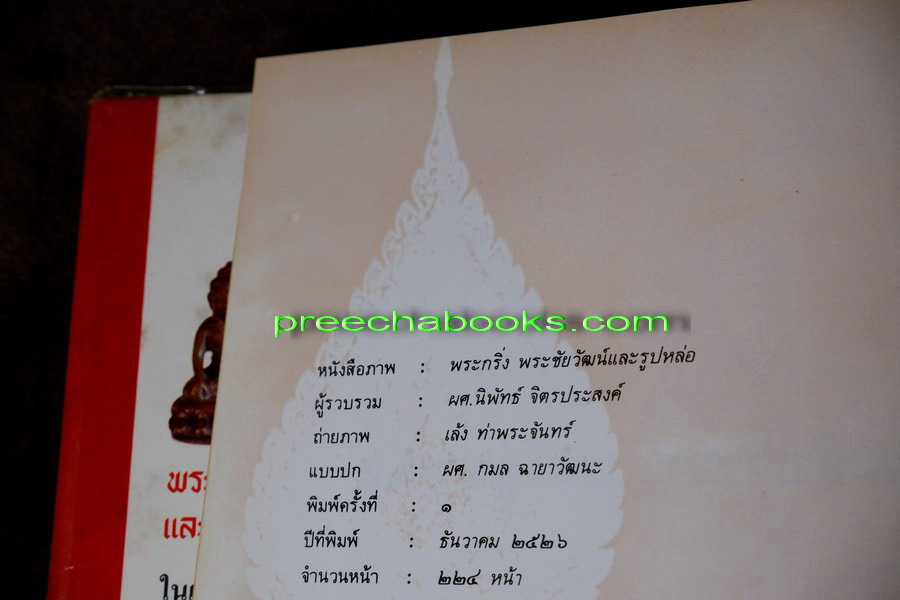 preechabooks.com
หนังสือภาพ : พระกริ่ง พระชัยวัฒน์และรูปหล่อ
ผู้รวบรวม : ผศ.นิพัทธ์ จิตรประสงค์
ถ่ายภาพ : เล้ง ท่าพระจันทร์
แบบปก : ผศ. กมล ฉายาวัฒนะ
พิมพ์ครั้งที่ : ๑
ปีที่พิมพ์ : ธันวาคม ๒๕๒๖
จำนวนหน้า : ๒๒๔ หน้า
พระ
และ